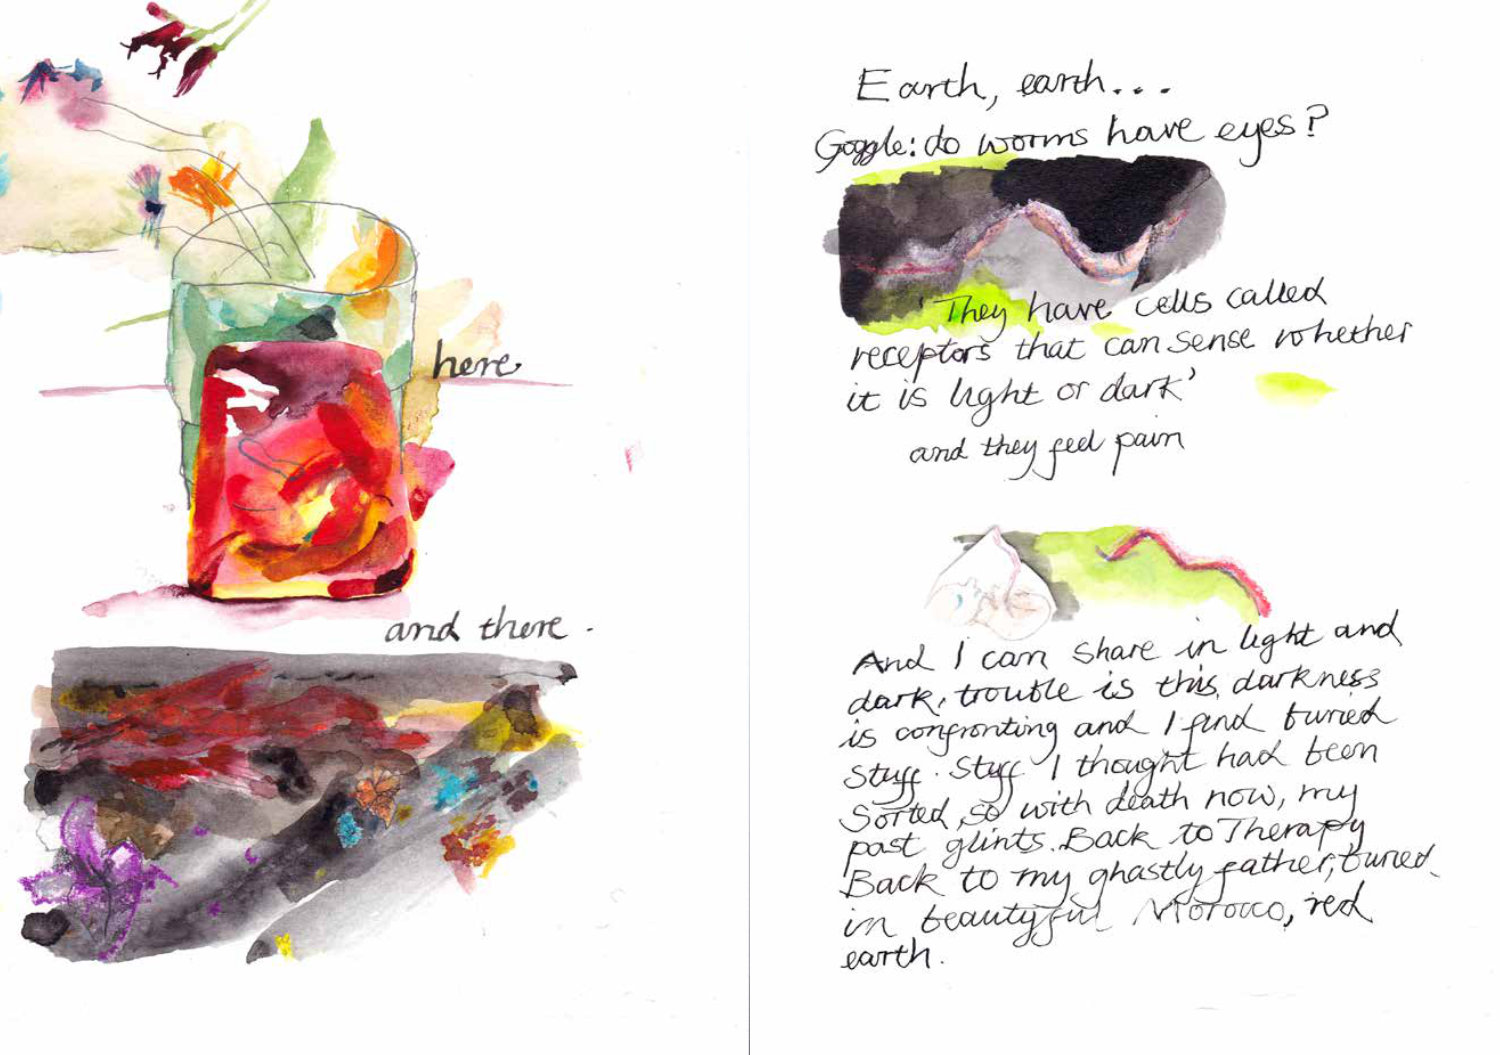 here
and there.
Earth, earth...
Goggle: do worms have eyes?
'They have cells called
receptors that can sense whether
it is light or dark'
and they feel pain
And I can share in light and
dark, trouble is this, darkness
is confronting and I find buried
stuff. Stuff I thought had been
Sorted, so with death now, my
past glints. Back to Therapy
Back to my ghastly father, buried
in beautyful Morocco, red
earth.